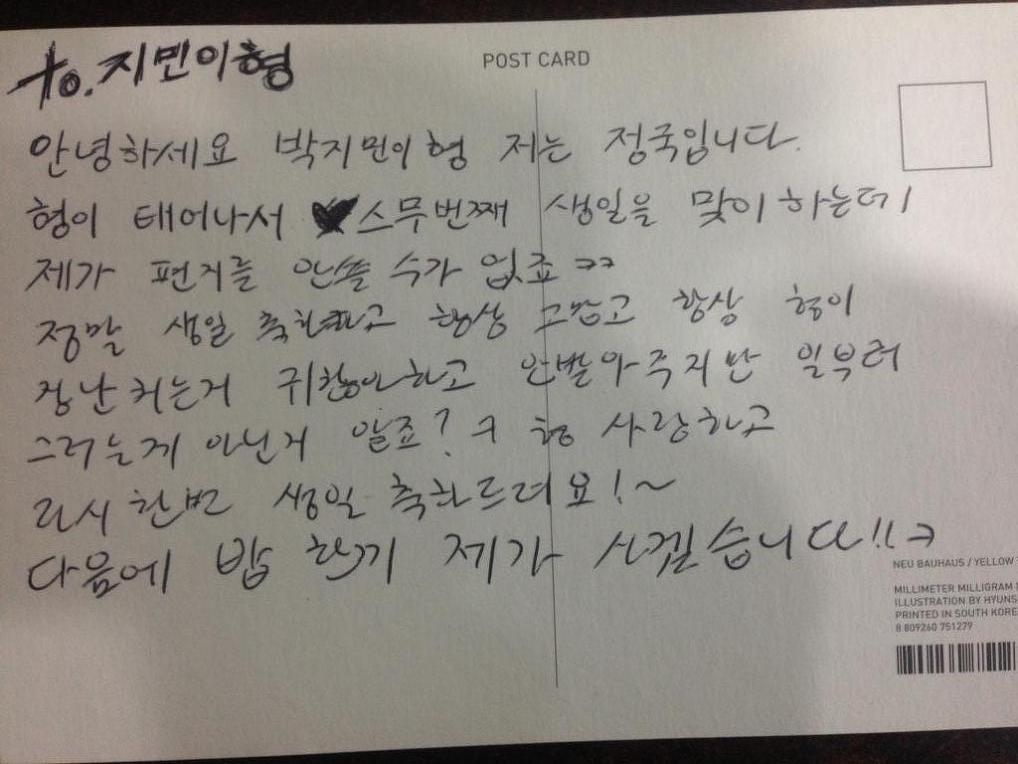 to. 지민이형
POST CARD
안녕하세요 박지민이형 저는 정국입니다.
형이 태어나서 스무번째 생일을 맞이하는데
제가 편지를 안쓸 수가 없죠 ㅋㅋ
정말 생일 축하하고 항상 고맙고 항상 형이
장난치는거 귀찮아하고 안받아주지만 일부러
그러는게 아닌거 알죠? ㅋ 형 사랑하고
다시한번 생일 축하드려요!~
다음에 밥 한끼 제가 사겠습니다!! ㅋ
NEU BAUHAUS / YELLOW
MILLIMETER MILLIGRAM
ILLUSTRATION BY HYUNS
PRINTED IN SOUTH KORE
8 809260 751279